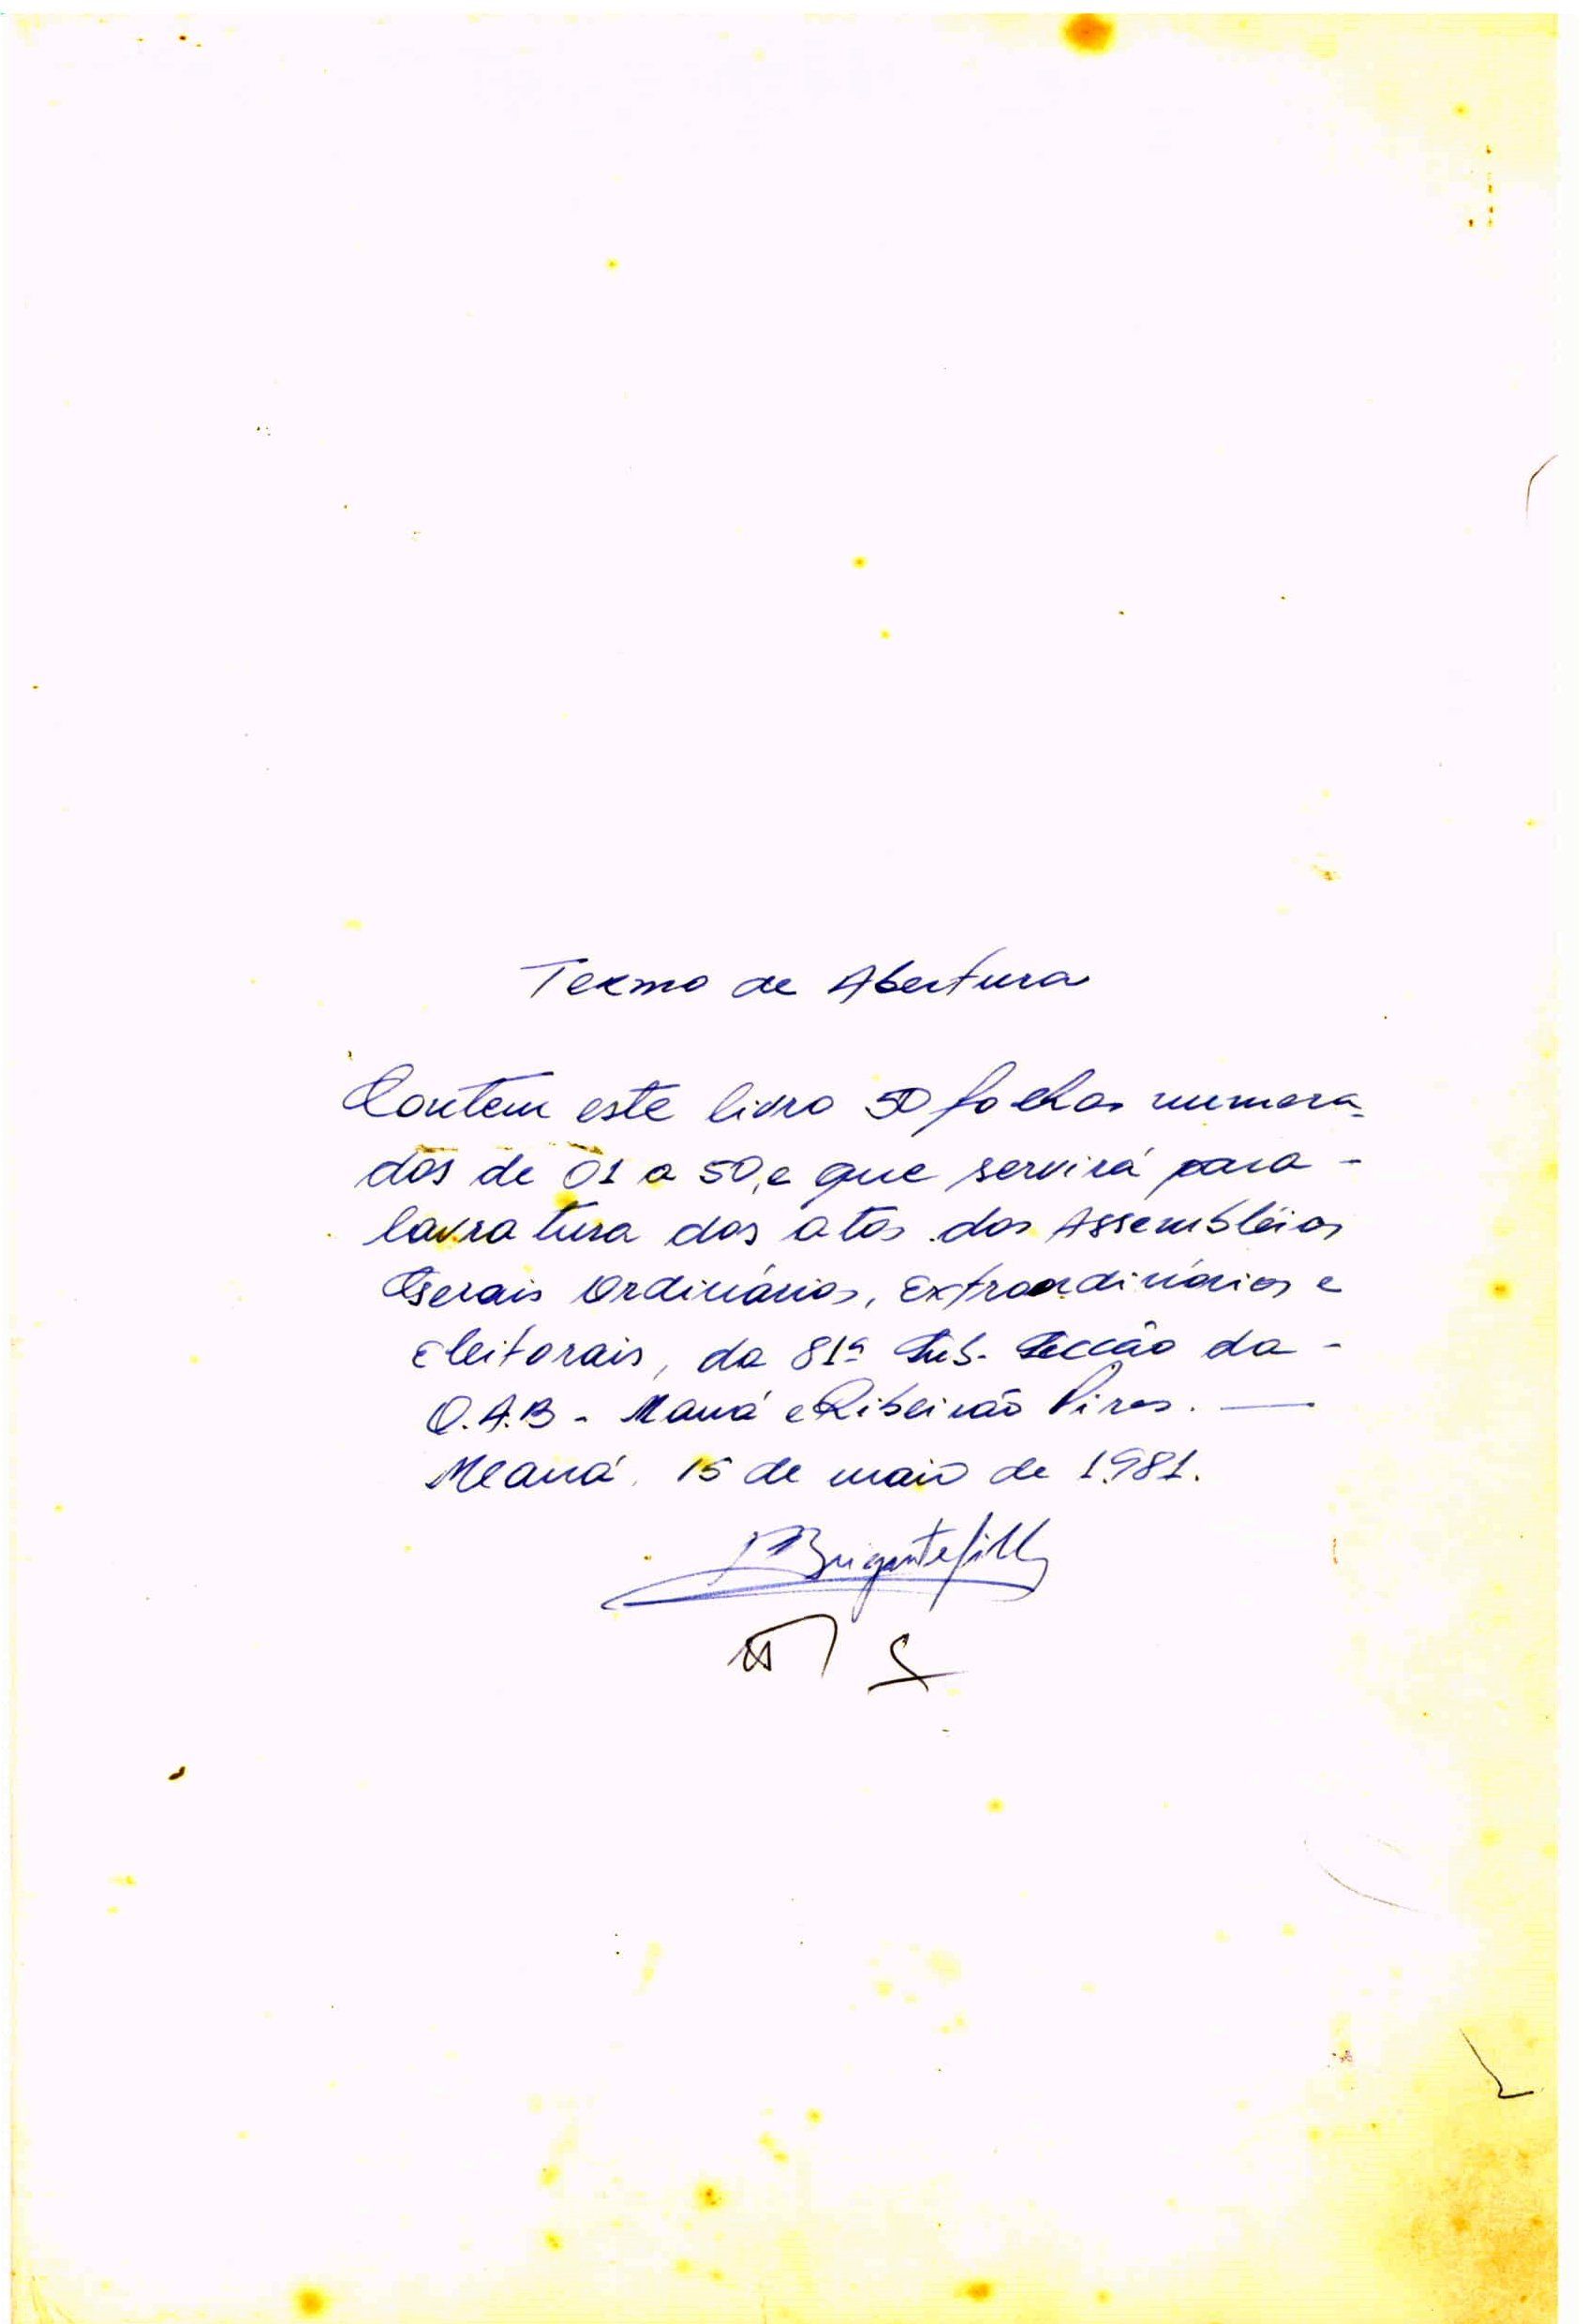 Termo de Abertura
Contem este livro 50 folhas numera-
das de 01 a 50, e que servirá para -
lavratura das atas das Assembléias
Gerais Ordinárias, Extraordinárias e
Eleitorais, da 81ª Sub-Secção da -
O.A.B - Mauá e Ribeirão Pires. —
Mauá, 15 de maio de 1.981.